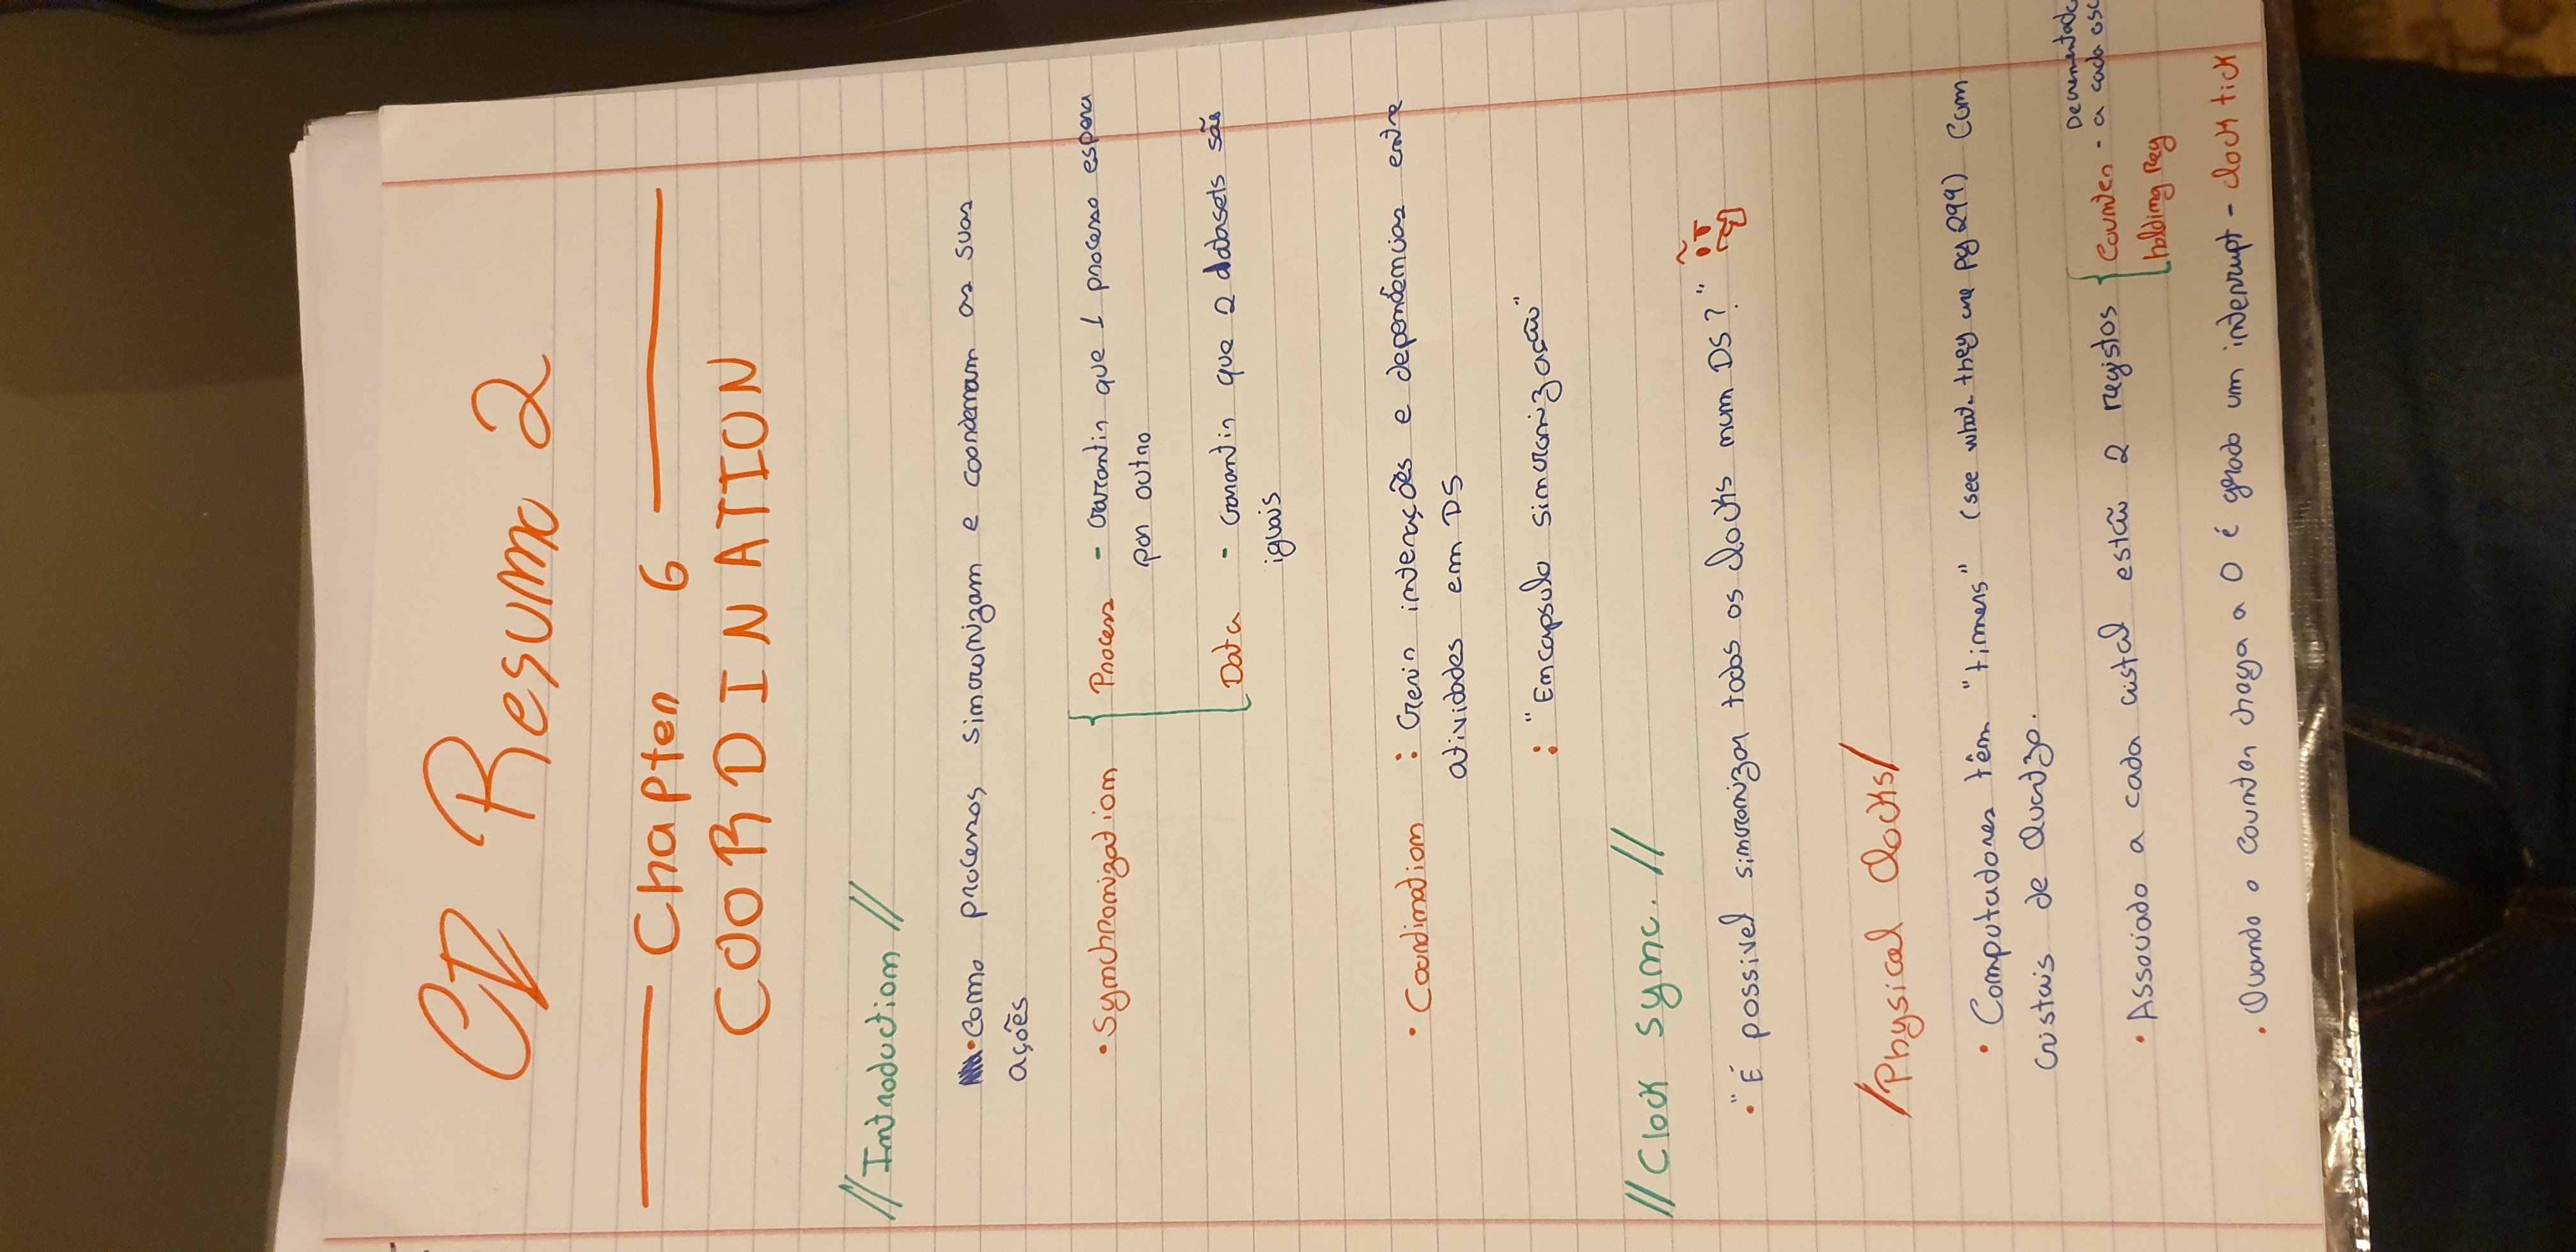 CD Resumo 2
Chapter 6
COORDINATION
// Introduction //
• Como processos sincronizam e coordenam as suas
ações
• Synchronization { Process - Garantir que 1 processo espera
por outro
Data - Garantir que 2 datasets são
iguais
• Coordination : Gerir interações e dependências entre
atividades em DS
: "Encapsula sincronização"
// Clock sync. //
• "É possivel sincronizar todos os clocks num DS?"
/Physical Clocks/
• Computadores têm "timers" (see what they are pg 299) com
cristais de Quartzo.
• Associado a cada cristal estão 2 registos { Counter - Decrementado
a cada osc
holding reg
• Quando o counter chega a 0 é gerado um interrupt - clock tick